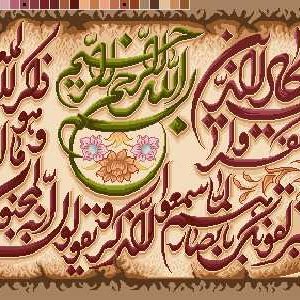 بسم الله الرحمن الرحیم
الذین
کفروا
لقونک بابصارهم لما سمعوا الذکر و یقولون انه لمجنون
و ما هو
ذکر